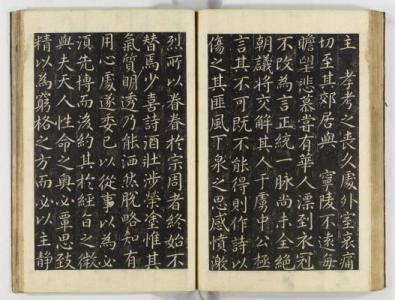 主 孝考之喪久處外室哀痛
切至其郊居與 寧陵不遠每
瞻望悲慕嘗有華人漂到衣冠
不改為言正統一脉尚未全絶
朝議將交解其人于虜中公極
言其不可既不能得則作詩以
傷之其匪風下泉之思感憤激
烈所以眷眷於宗周者終始不
替焉少喜詩酒壯涉榮塗惟其
氣質明透乃能洒然脫略知有
用心處遂委已以從事以為必
須先博而後約其於經旨之微
與夫天人性命之奧必覃思致
精以為窮格之方而必以主静